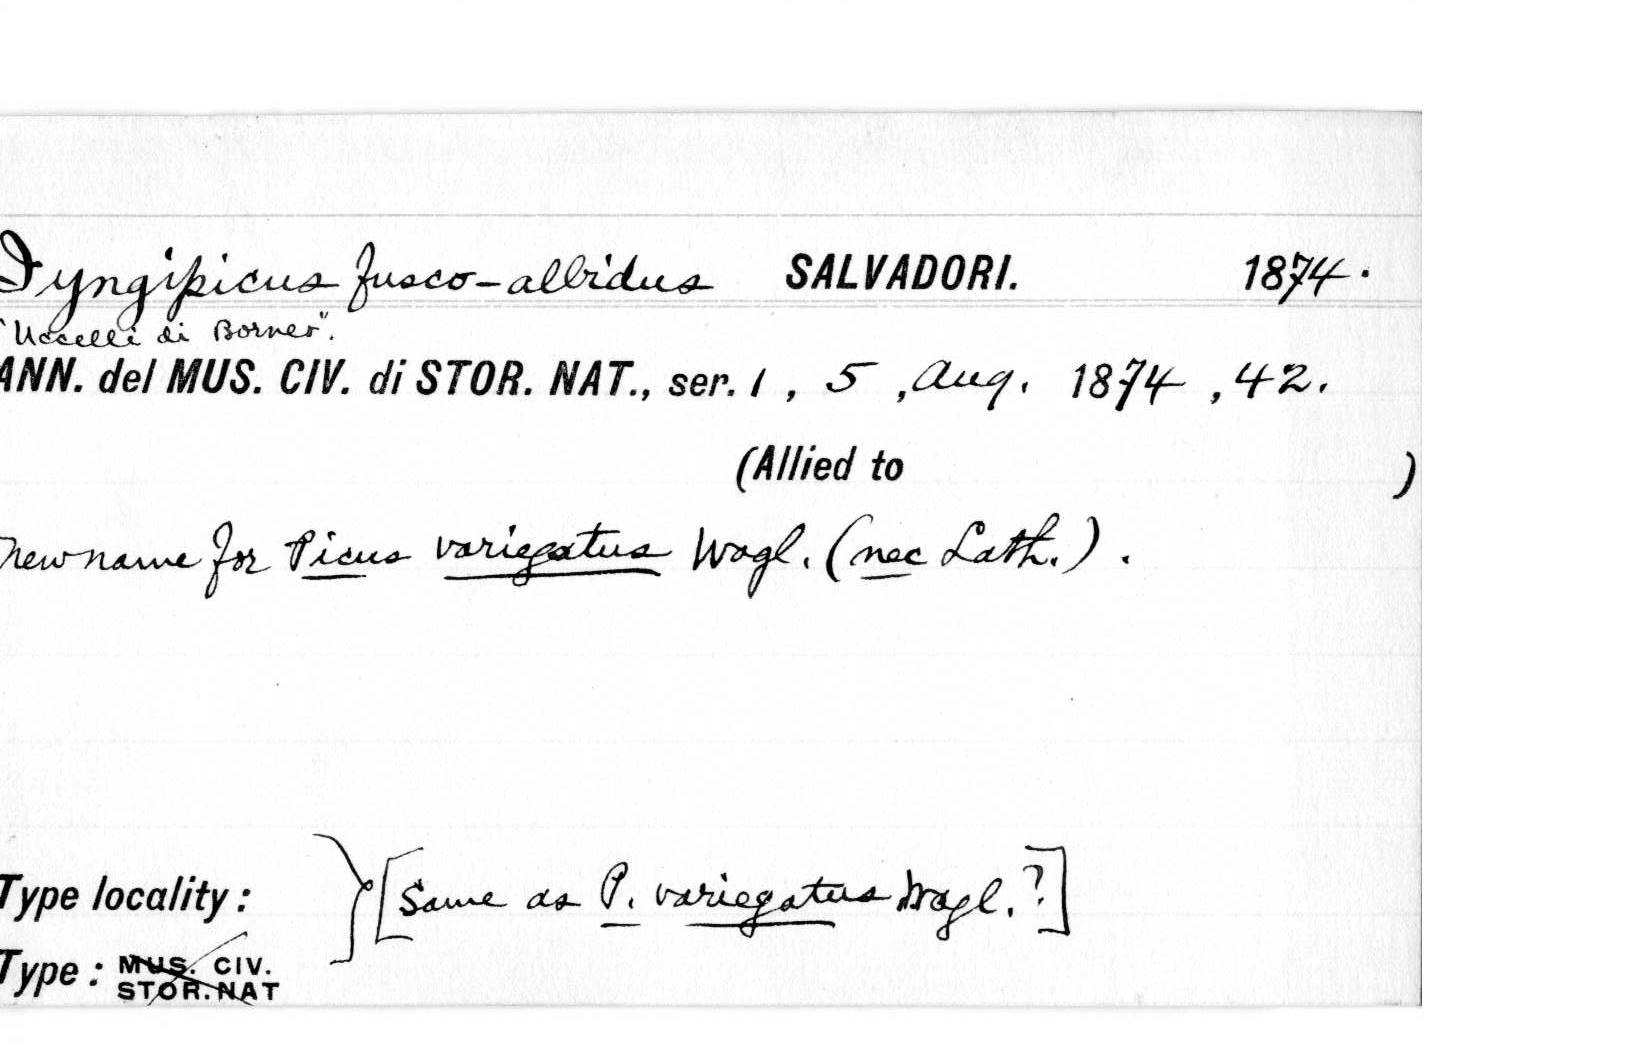 Iyngipicus fusco-albidus SALVADORI. 1874.
"Uccelli di Borneo".
ANN. del MUS. CIV. di STOR. NAT., ser. 1, 5, Aug. 1874, 42.
(Allied to )
New name for Picus variegatus Wagl. (nec Lath.).
Type locality: } [Same as P. variegatus Wagl.?]
Type: MUS. CIV.
STOR. NAT